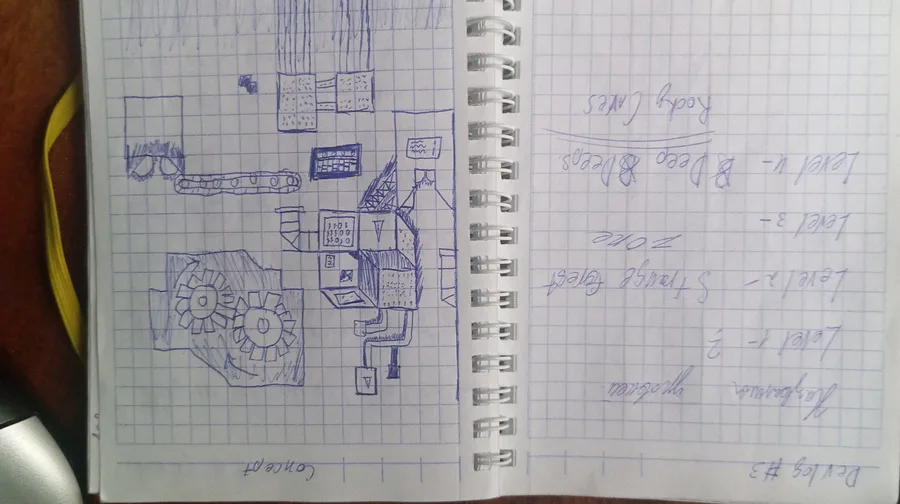 Devlog #3
Названия уровней
Level 1 - ?
Level 2 - Strange forest
zone
Level 3 -
Level 4 - Deep Deeps
Rocky Caves
Concept